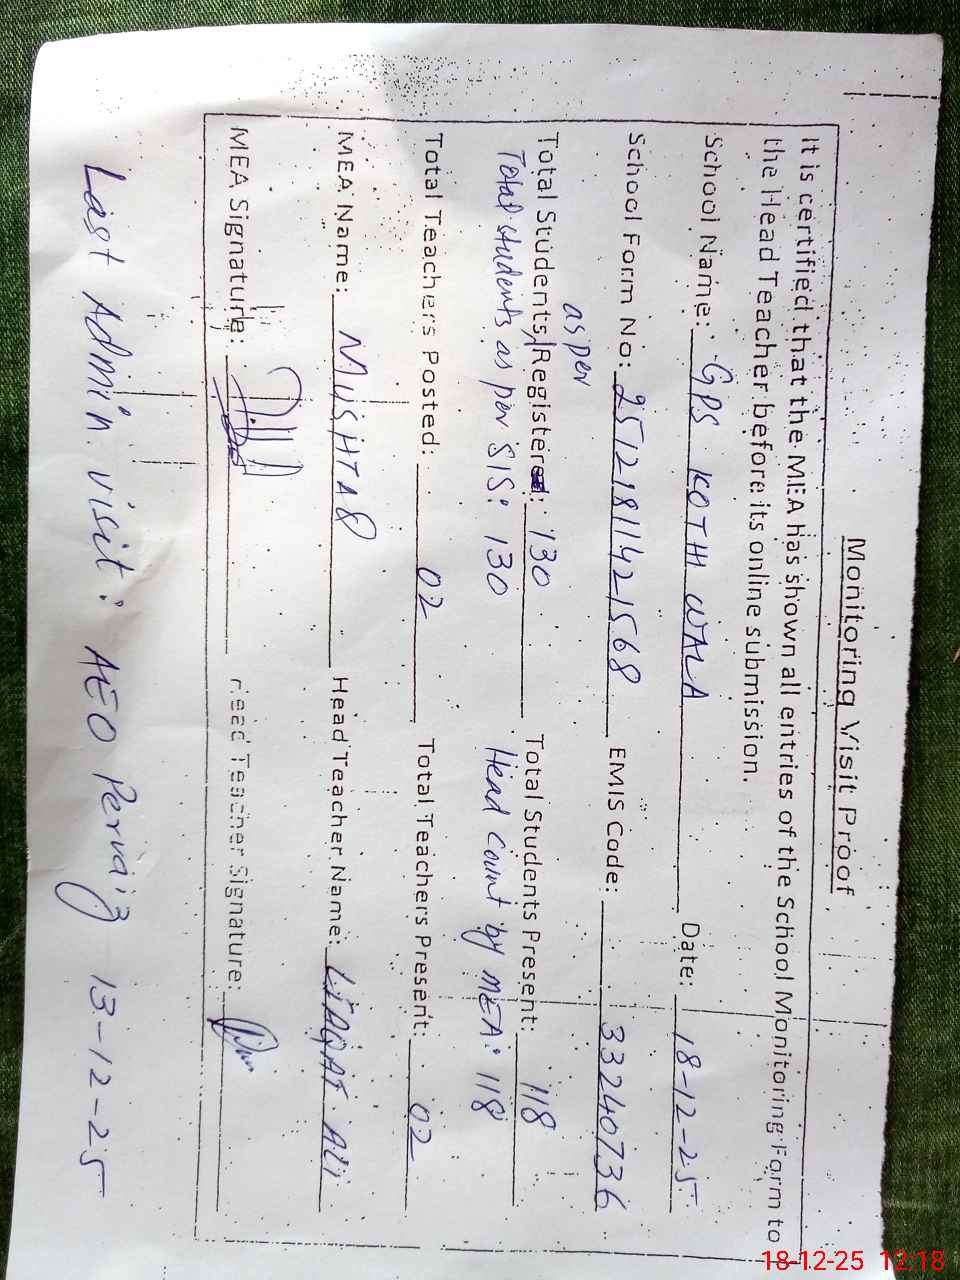 Monitoring Visit Proof
It is certified that the MEA has shown all entries of the School Monitoring Form to
the Head Teacher before its online submission.
School Name: GPS KOTH WALA Date: 18-12-25
School Form No: 25721811421568 EMIS Code: 33240736
as per
Total Students Registered: 130 Total Students Present: 118
Total students as per SIS: 130 Head count by MEA: 118
Total Teachers Posted: 02 Total Teachers Present: 02
MEA Name: MUSHTAQ Head Teacher Name: LIAQAT Ali
MEA Signature: Head Teacher Signature:
Last Admin. visit: AEO Pervaiz 13-12-25
18-12-25 12:18